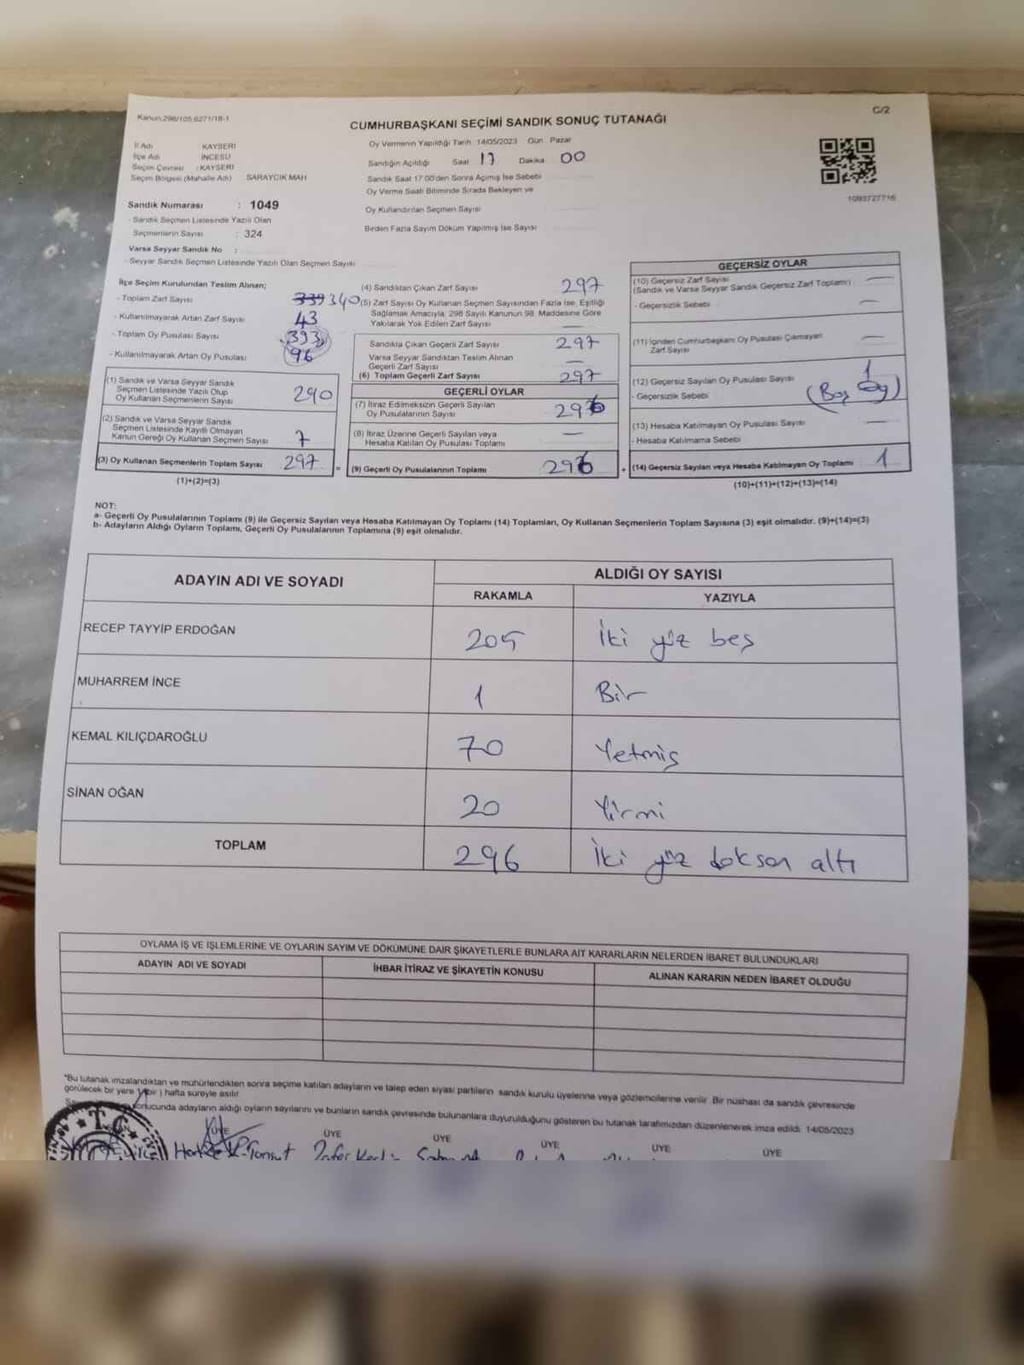 Kanun:298/105,6271/18-1
C/2
CUMHURBAŞKANI SEÇİMİ SANDIK SONUÇ TUTANAĞI
İl Adı : KAYSERİ
İlçe Adı : İNCESU
Seçim Çevresi : KAYSERİ
Seçim Bölgesi (Mahalle Adı) SARAYCIK MAH
Sandık Numarası : 1049
- Sandık Seçmen Listesinde Yazılı Olan
Seçmenlerin Sayısı : 324
Varsa Seyyar Sandık No :
- Seyyar Sandık Seçmen Listesinde Yazılı Olan Seçmen Sayısı
Oy Vermenin Yapıldığı Tarih 14/05/2023 Gün Pazar
Sandığın Açıldığı Saat 17 Dakika 00
Sandık Saat 17.00'den Sonra Açımış İse Sebebi
Oy Verme Saati Bitiminde Sırada Bekleyen ve
Oy Kullandırılan Seçmen Sayısı
Birden Fazla Sayım Döküm Yapılmış İse Sayısı
1093727716
İlçe Seçim Kurulundan Teslim Alınan;
- Toplam Zarf Sayısı 339 340
- Kullanılmayarak Artan Zarf Sayısı 43
- Toplam Oy Pusulası Sayısı 393
- Kullanılmayarak Artan Oy Pusulası 96
(1) Sandık ve Varsa Seyyar Sandık
Seçmen Listesinde Yazılı Olup
Oy Kullanan Seçmenlerin Sayısı 290
(2) Sandık ve Varsa Seyyar Sandık
Seçmen Listesinde Kayıtlı Olmayan
Kanun Gereği Oy Kullanan Seçmen Sayısı 7
(3) Oy Kullanan Seçmenlerin Toplam Sayısı 297
(1)+(2)=(3)
(4) Sandıktan Çıkan Zarf Sayısı 297
(5) Zarf Sayısı Oy Kullanan Seçmen Sayısından Fazla İse, Eşitliği
Sağlamak Amacıyla, 298 Sayılı Kanunun 98. Maddesine Göre
Yakılarak Yok Edilen Zarf Sayısı —
Sandıkta Çıkan Geçerli Zarf Sayısı 297
Varsa Seyyar Sandıktan Teslim Alınan
Geçerli Zarf Sayısı —
(6) Toplam Geçerli Zarf Sayısı 297
GEÇERLİ OYLAR
(7) İtiraz Edilmeksizin Geçerli Sayılan
Oy Pusulalarının Sayısı 296
(8) İtiraz Üzerine Geçerli Sayılan veya
Hesaba Katılan Oy Pusulası Toplamı —
= (9) Geçerli Oy Pusulalarının Toplamı 296 +
GEÇERSİZ OYLAR
(10) Geçersiz Zarf Sayısı —
(Sandık ve Varsa Seyyar Sandık Geçersiz Zarf Toplamı)
- Geçersizlik Sebebi —
(11) İçinden Cumhurbaşkanı Oy Pusulası Çıkmayan —
Zarf Sayısı
(12) Geçersiz Sayılan Oy Pusulası Sayısı 1
- Geçersizlik Sebebi (Boş Oy)
(13) Hesaba Katılmayan Oy Pusulası Sayısı —
- Hesaba Katılmama Sebebi
(14) Geçersiz Sayılan veya Hesaba Katılmayan Oy Toplamı 1
(10)+(11)+(12)+(13)=(14)
NOT:
a- Geçerli Oy Pusulalarının Toplamı (9) ile Geçersiz Sayılan veya Hesaba Katılmayan Oy Toplamı (14) Toplamları, Oy Kullanan Seçmenlerin Toplam Sayısına (3) eşit olmalıdır. (9)+(14)=(3)
b- Adayların Aldığı Oyların Toplamı, Geçerli Oy Pusulalarının Toplamına (9) eşit olmalıdır.
ADAYIN ADI VE SOYADI ALDIĞI OY SAYISI
RAKAMLA YAZIYLA
RECEP TAYYİP ERDOĞAN 205 İki yüz beş
MUHARREM İNCE 1 Bir
KEMAL KILIÇDAROĞLU 70 Yetmiş
SİNAN OĞAN 20 Yirmi
TOPLAM 296 İki yüz doksan altı
OYLAMA İŞ VE İŞLEMLERİNE VE OYLARIN SAYIM VE DÖKÜMÜNE DAİR ŞİKAYETLERLE BUNLARA AİT KARARLARIN NELERDEN İBARET BULUNDUKLARI
ADAYIN ADI VE SOYADI İHBAR İTİRAZ VE ŞİKAYETİN KONUSU ALINAN KARARIN NEDEN İBARET OLDUĞU
*Bu tutanak imzalandıktan ve mühürlendikten sonra seçime katılan adayların ve talep eden siyasi partilerin sandık kurulu üyelerine veya gözlemcilerine verilir. Bir nüshası da sandık çevresinde
görülecek bir yere 1(bir) hafta süreyle asılır.
sonucunda adayların aldığı oyların sayılarını ve bunların sandık çevresinde bulunanlara duyurulduğunu gösteren bu tutanak tarafımızdan düzenlenerek imza edildi. 14/05/2023
T.C.
ÜYE ÜYE ÜYE ÜYE ÜYE ÜYE